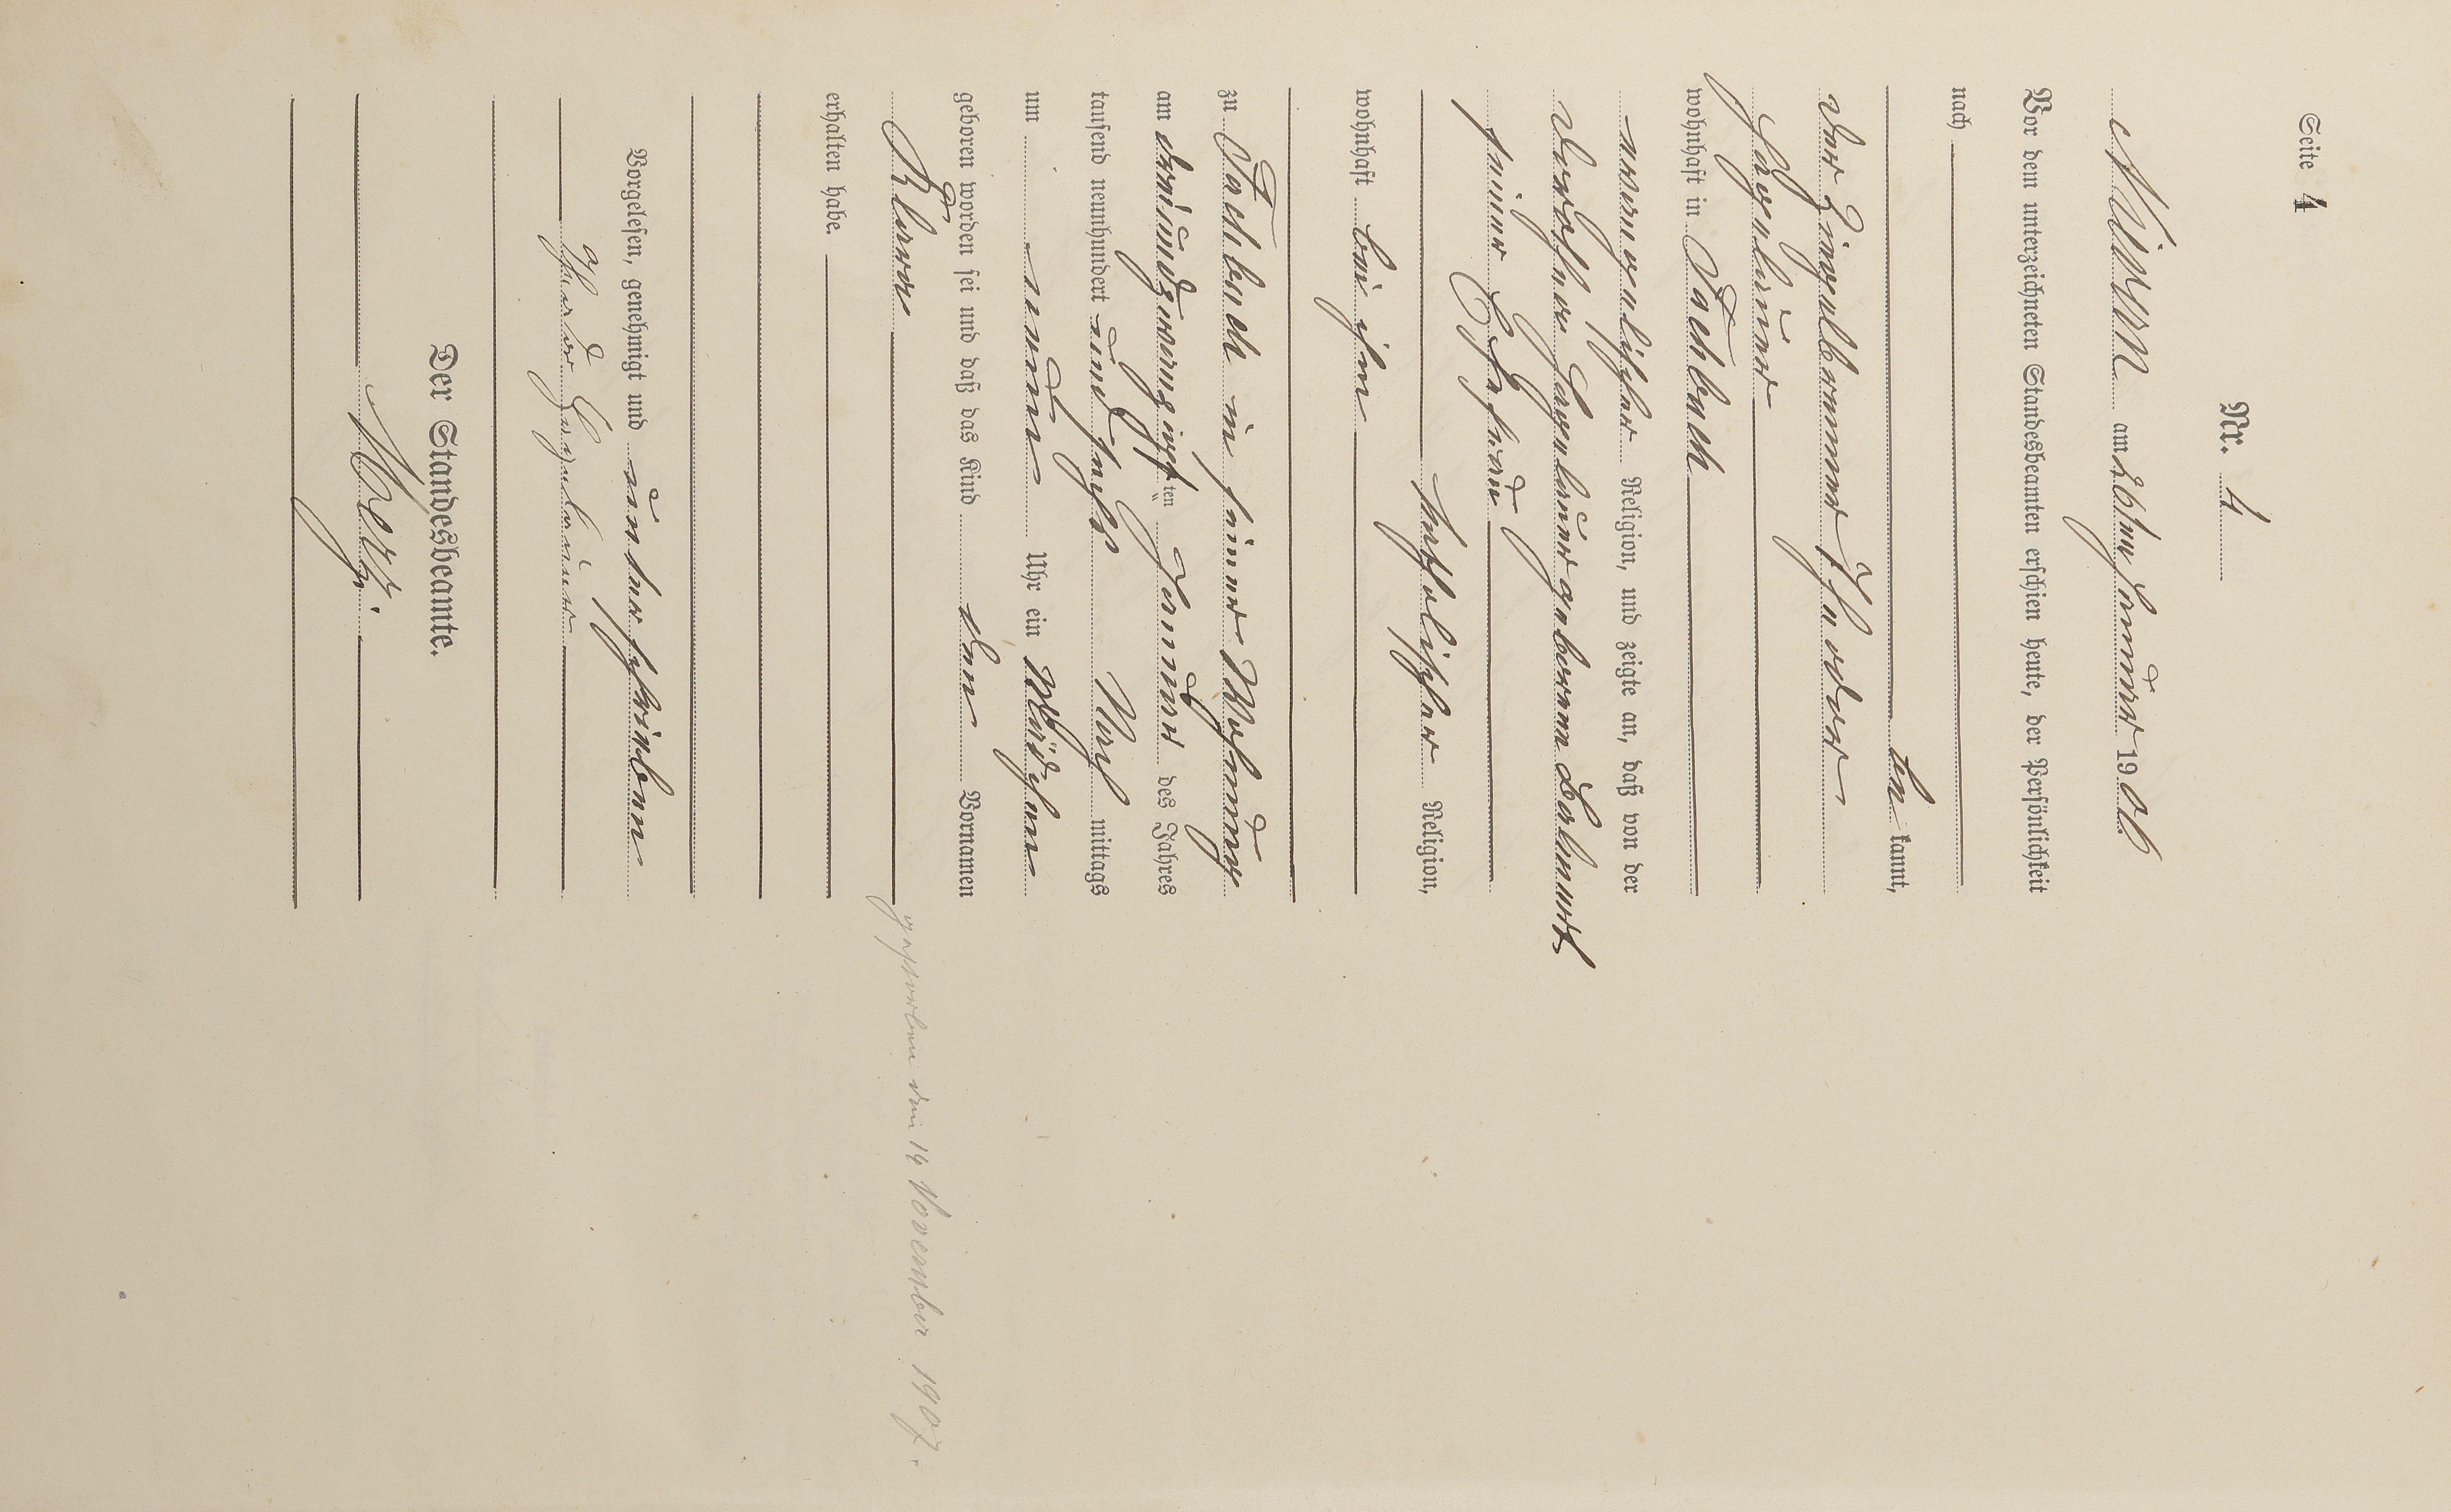 Seite 4
Nr. 4
Nievern am 26ten Januar 1906
Vor dem unterzeichneten Standesbeamten erschien heute, der Persönlichkeit
nach
be kannt,
der Ziegelbrenner Theodor
Hagelauer
wohnhaft in Fachbach
evangelischer Religion, und zeigte an, daß von der
Dorothea Hagelauer geborene
seiner Ehefrau
katholischer Religion,
wohnhaft bei ihm
zu Fachbach in seiner Wohnung
am dreiundzwanzigsten ten Januar des Jahres
tausend neunhundert und sechs Nach mittags
um neun Uhr ein Mädchen
geboren worden sei und daß das Kind den Vornamen
Klara
erhalten habe.
Vorgelesen, genehmigt und unterschrieben
Theodor Hagelauer
Der Standesbeamte.
gestorben den 14 November 1907.